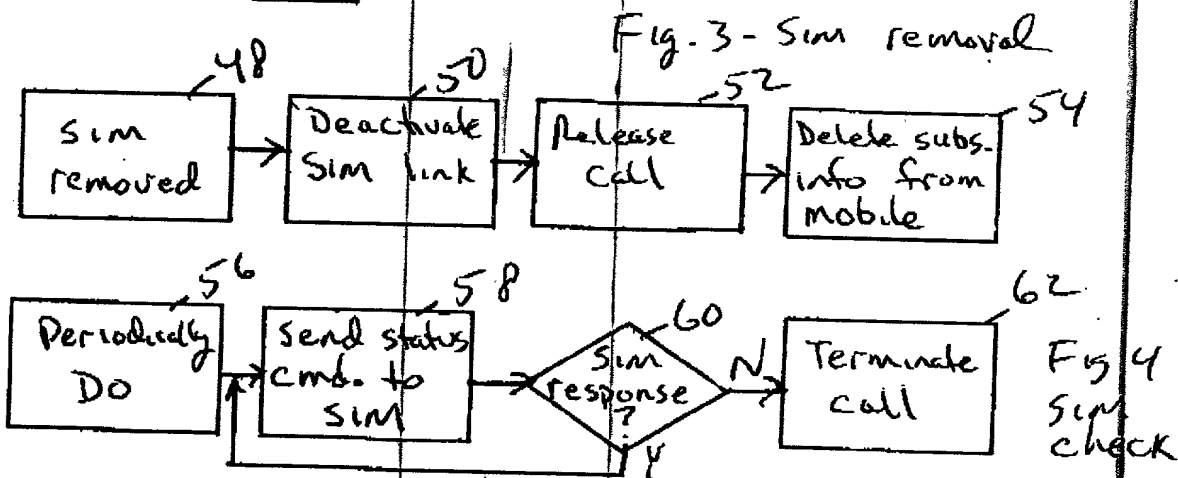 Fig. 3 - Sim removal
48
Sim
removed
50
Deactivate
Sim link
52
Release
call
54
Delete subs.
info from
mobile
56
Periodically
DO
58
Send status
cmd. to
SIM
60
Sim
response
?
N
Y
62
Terminate
call
Fig 4
Sim
check